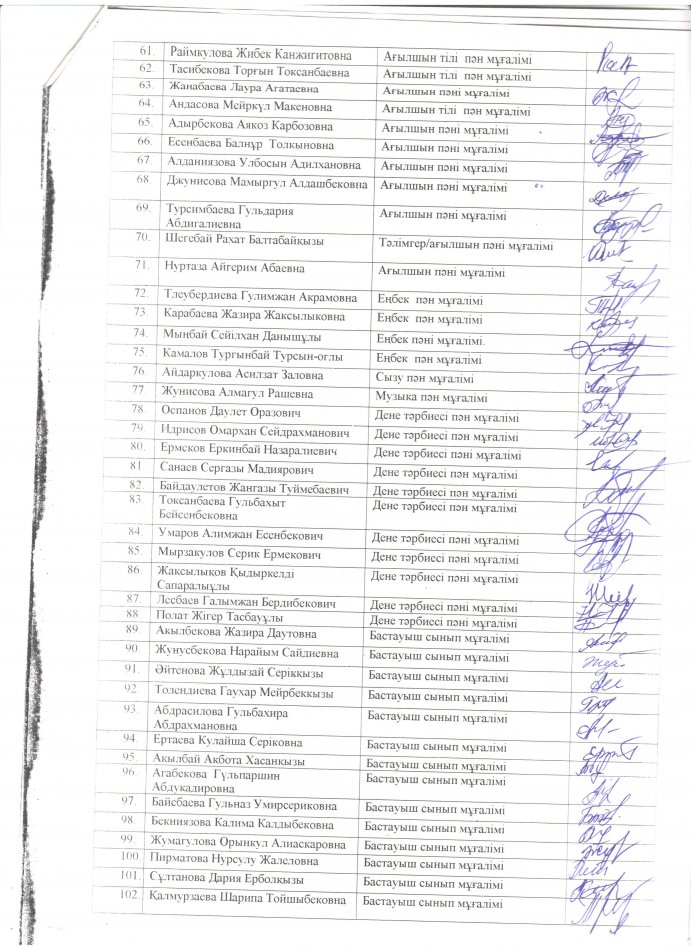 61. Раймкулова Жибек Канжигитовна Ағылшын тілі пән мұғалімі
62. Тасибекова Торғын Токсанбаевна Ағылшын тілі пән мұғалімі
63. Жанабаева Лаура Агатаевна Ағылшын пәні мұғалімі
64. Андасова Мейркүл Макеновна Ағылшын тілі пән мұғалімі
65. Адырбекова Аякоз Карбозовна Ағылшын пәні мұғалімі
66. Есенбаева Балнұр Толкыновна Ағылшын пәні мұғалімі
67. Алданиязова Улбосын Адилхановна Ағылшын пәні мұғалімі
68. Джунисова Мамыргул Алдашбековна Ағылшын пәні мұғалімі
69. Турсимбаева Гульдария Ағылшын пәні мұғалімі
Абдигалиевна
70. Шегебай Рахат Балтабайқызы Тәлімгер/ағылшын пәні мұғалімі
71. Нуртаза Айгерим Абаевна Ағылшын пәні мұғалімі
72. Тлеубердиева Гулимжан Акрамовна Еңбек пән мұғалімі
73. Карабаева Жазира Жаксылыковна Еңбек пән мұғалімі
74. Мынбай Сейілхан Данышұлы Еңбек пәні мұғалімі.
75. Камалов Тургынбай Турсын-оглы Еңбек пән мұғалімі
76. Айдаркулова Асилзат Заловна Сызу пән мұғалімі
77 Жунисова Алмагул Рашевна Музыка пән мұғалімі
78 Оспанов Даулет Оразович Дене тәрбиесі пән мұғалімі
79. Идрисов Омархан Сейдрахманович Дене тәрбиесі пән мұғалімі
80. Ермеков Еркинбай Назаралиевич Дене тәрбиесі пән мұғалімі
81 Санаев Сергазы Мадиярович Дене тәрбиесі пән мұғалімі
82. Байдаулетов Жангазы Туймебаевич Дене тәрбиесі пән мұғалімі
83. Токсанбаева Гульбахыт Дене тәрбиесі пән мұғалімі
Бейсенбековна
84. Умаров Алимжан Есенбекович Дене тәрбиесі пән мұғалімі
85 Мырзакулов Серик Ермекович Дене тәрбиесі пән мұғалімі
86. Жаксылықов Қыдыркелді Дене тәрбиесі пәні мұғалімі
Сапаралыұлы
87. Лесбаев Галымжан Бердибекович Дене тәрбиесі пәні мұғалімі
88 Полат Жігер Тасбауұлы Дене тәрбиесі пәні мұғалімі
89 Акылбекова Жазира Даутовна Бастауыш сынып мұғалімі
90 Жунусбекова Нарайым Сайдиевна Бастауыш сынып мұғалімі
91. Әйтенова Жұлдызай Серікқызы Бастауыш сынып мұғалімі
92 Толендиева Гаухар Мейрбекқызы Бастауыш сынып мұғалімі
93. Абдрасилова Гульбахира Бастауыш сынып мұғалімі
Абдрахмановна
94. Ертаева Кулайша Серіковна Бастауыш сынып мұғалімі
95. Ақылбай Ақбота Хасанқызы Бастауыш сынып мұғалімі
96. Агабекова Гүльпаршин Бастауыш сынып мұғалімі
Абдукадировна
97. Байебаева Гульназ Умирсериковна Бастауыш сынып мұғалімі
98. Бекниязова Калима Калдыбековна Бастауыш сынып мұғалімі
99. Жумагулова Орынкул Алиаскаровна Бастауыш сынып мұғалімі
100. Пирматова Нурсулу Жалеловна Бастауыш сынып мұғалімі
101. Сұлтанова Дария Ерболқызы Бастауыш сынып мұғалімі
102. Қалмурзаева Шарипа Тойшыбековна Бастауыш сынып мұғалімі